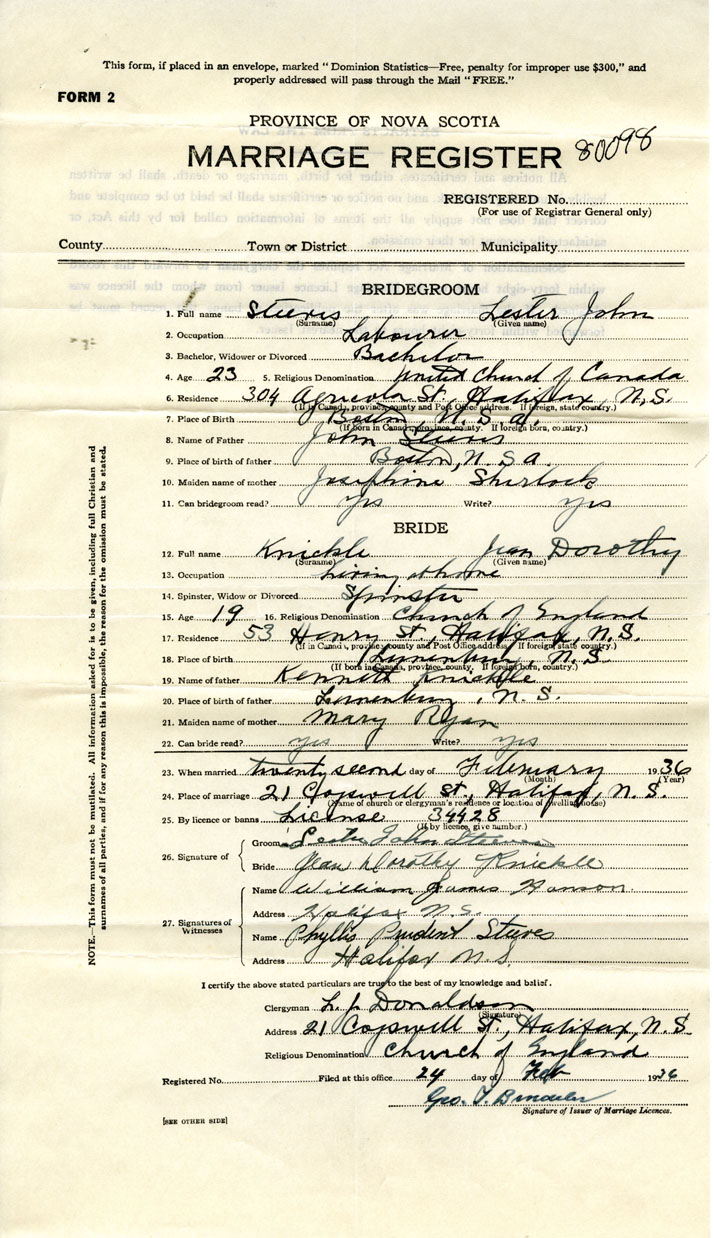 This form, if placed in an envelope, marked "Dominion Statistics—Free, penalty for improper use $300," and
properly addressed will pass through the Mail "FREE."
FORM 2
PROVINCE OF NOVA SCOTIA
MARRIAGE REGISTER 80098
REGISTERED No.
(For use of Registrar General only)
County Town or District Municipality
BRIDEGROOM
1. Full name Steeves Lester John
(Surname) (Given name)
2. Occupation Labourer
3. Bachelor, Widower or Divorced Bachelor
4. Age 23 5. Religious Denomination United Church of Canada
6. Residence 304 Agricola St., Halifax, N.S.
(If in Canada, province, county and Post Office address. If foreign, state country.)
7. Place of Birth Boston, U.S.A.
(If born in Canada, province, county. If foreign born, country.)
8. Name of Father John Steeves
9. Place of birth of father Boston, U.S.A.
10. Maiden name of mother Josephine Sherlock
11. Can bridegroom read? yes Write? yes
BRIDE
12. Full name Knickle Jean Dorothy
(Surname) (Given name)
13. Occupation Living at home
14. Spinster, Widow or Divorced Spinster
15. Age 19 16. Religious Denomination Church of England
17. Residence 53 Henry St., Halifax, N.S.
(If in Canada, province, county and Post Office address. If foreign, state country.)
18. Place of birth Lunenburg, N.S.
(If born in Canada, province, county. If foreign born, country.)
19. Name of father Kenneth Knickle
20. Place of birth of father Lunenburg, N.S.
21. Maiden name of mother Mary Ryan
22. Can bride read? yes Write? yes
23. When married twenty second day of February 1936
(Month) (Year)
24. Place of marriage 21 Cogswell St., Halifax, N.S.
(Name of church or clergyman's residence or location of dwelling house)
25. By licence or banns License 34428
(If by licence, give number.)
26. Signature of
Groom Lester John Steeves
Bride Jean Dorothy Knickle
27. Signatures of Witnesses
Name William James Hanson
Address Halifax N.S.
Name Phyllis Prudent Steeves
Address Halifax N.S.
I certify the above stated particulars are true to the best of my knowledge and belief.
Clergyman L. J. Donaldson
(Signature)
Address 21 Cogswell St., Halifax, N.S.
Religious Denomination Church of England
Registered No. Filed at this office 24 day of Feb 1936
Geo.
Signature of Issuer of Marriage Licences.
[SEE OTHER SIDE]
NOTE.—This form must not be mutilated. All information asked for is to be given, including full Christian and
surnames of all parties, and if for any reason this is impossible, the reason for the omission must be stated.